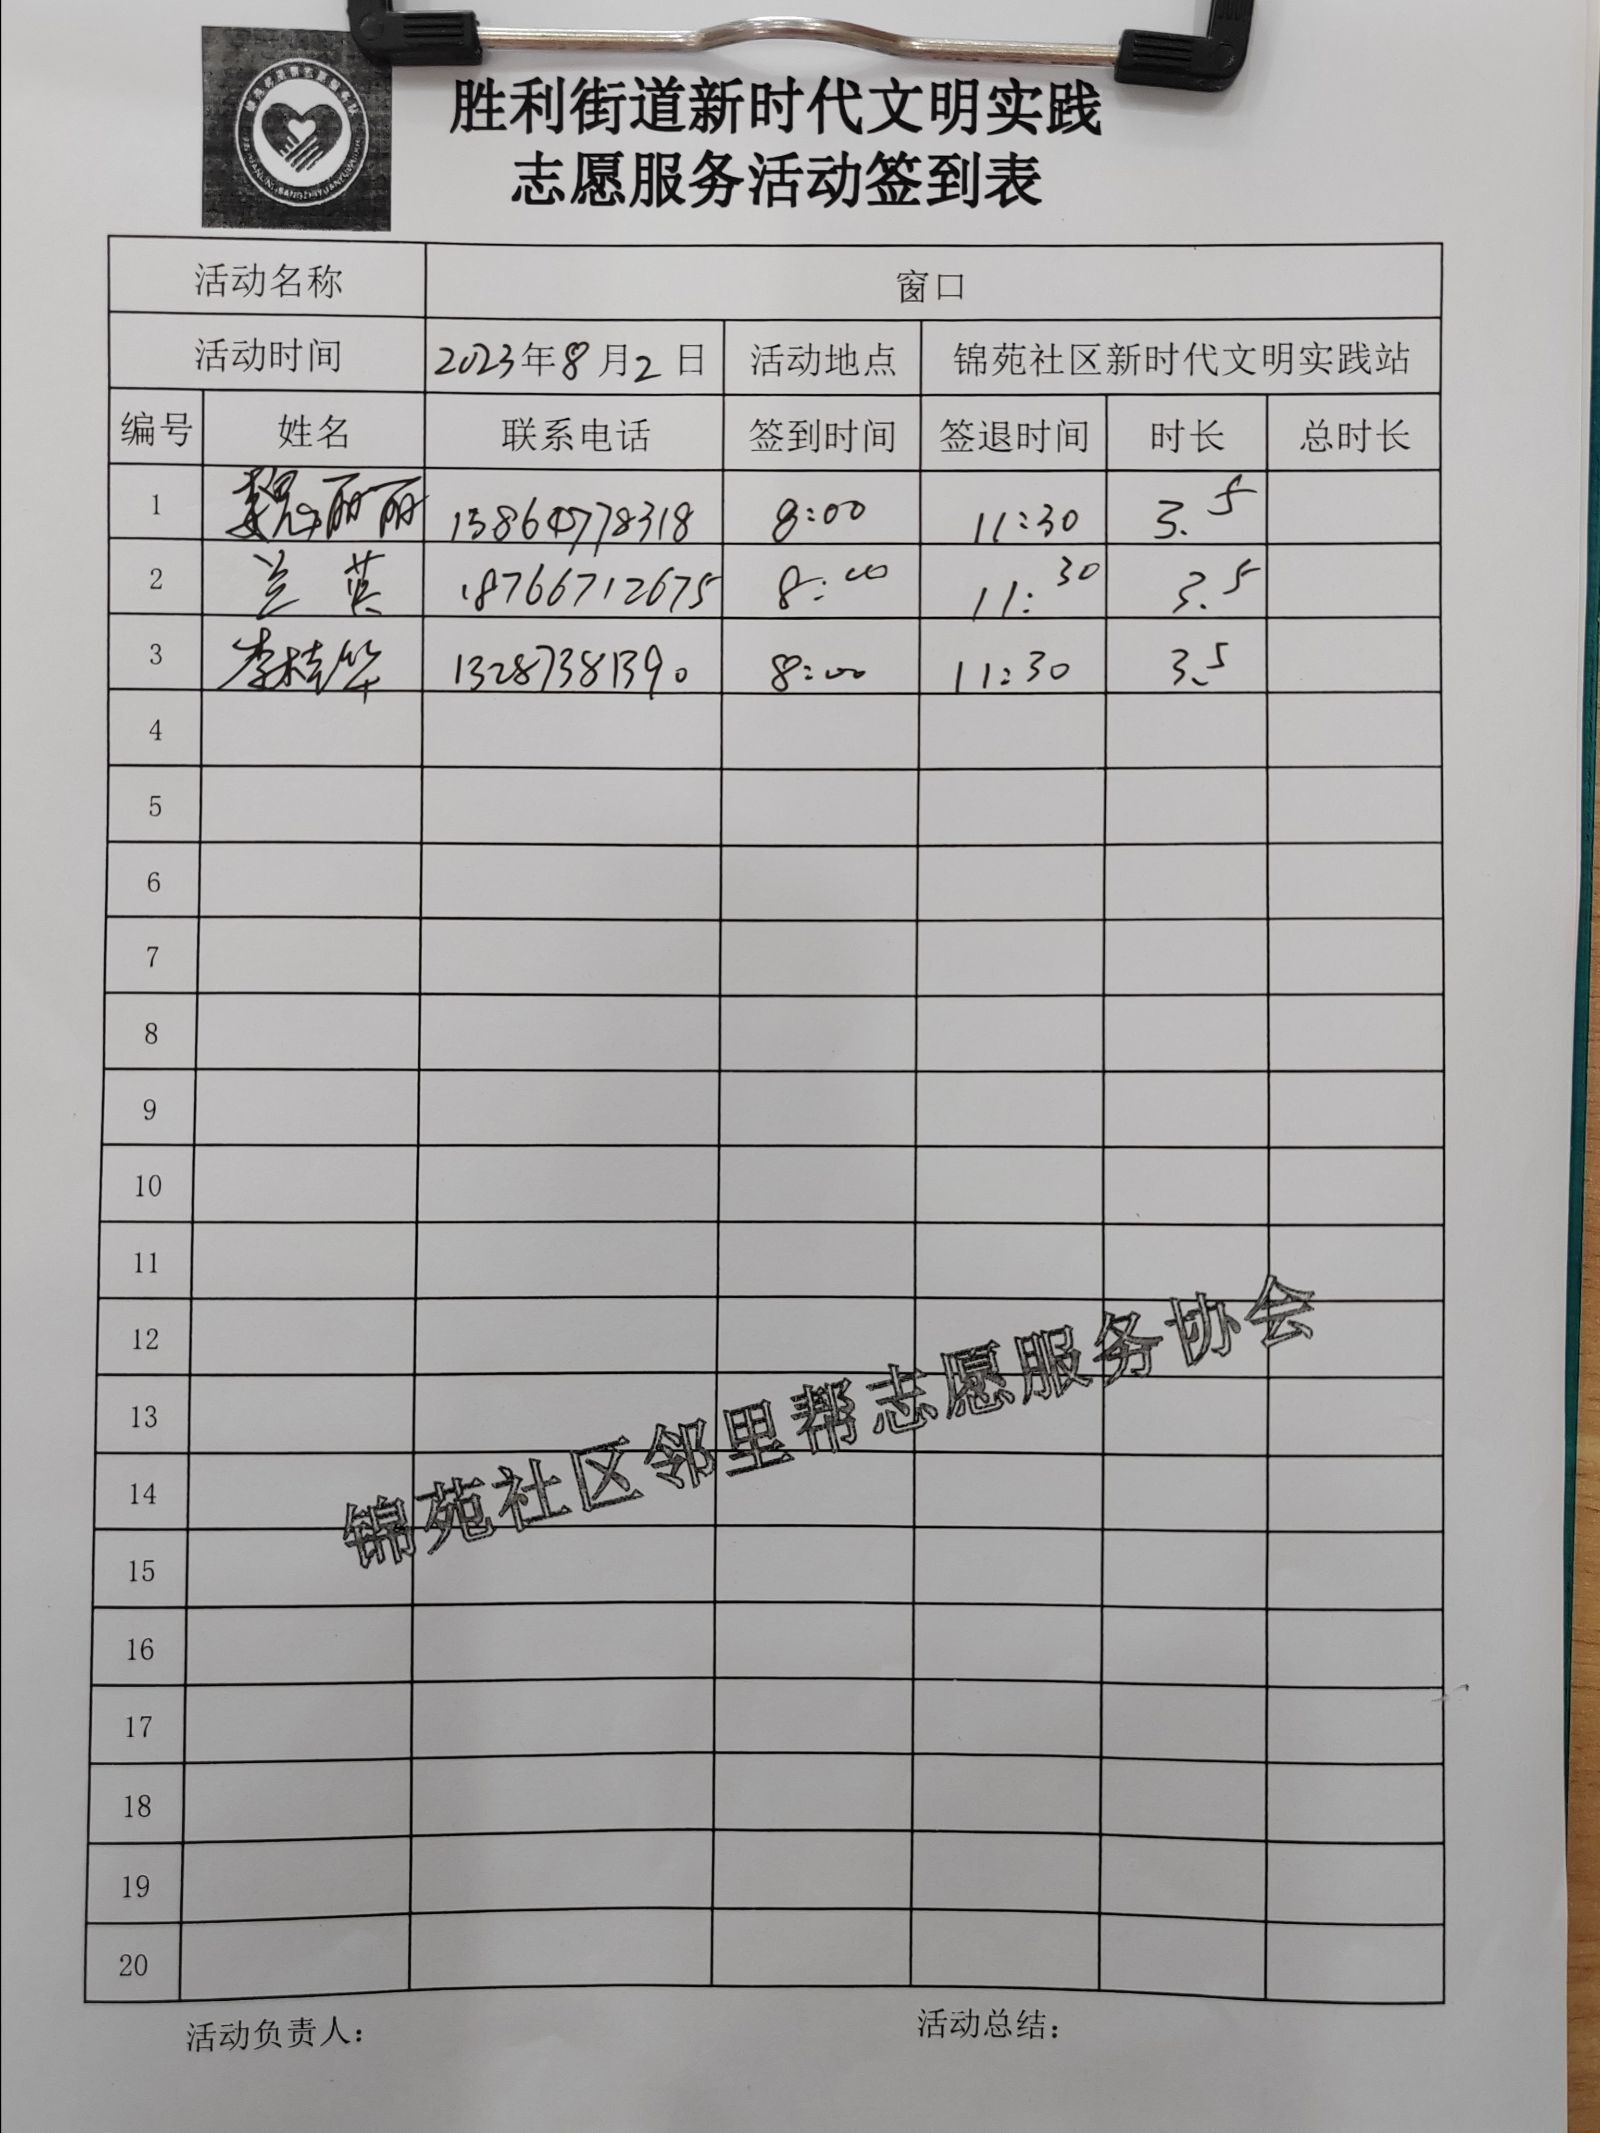 胜利街道新时代文明实践
志愿服务活动签到表
活动名称 窗口
活动时间 2023年8月2日 活动地点 锦苑社区新时代文明实践站
编号 姓名 联系电话 签到时间 签退时间 时长 总时长
1 魏丽丽 15864778318 8:00 11:30 3.5
2 兰英 18766712675 8:00 11:30 3.5
3 李桂华 13287381390 8:00 11:30 3.5
4
5
6
7
8
9
10
11
12
13
14
15
16
17
18
19
20
锦苑社区邻里帮志愿服务协会
活动负责人： 活动总结：